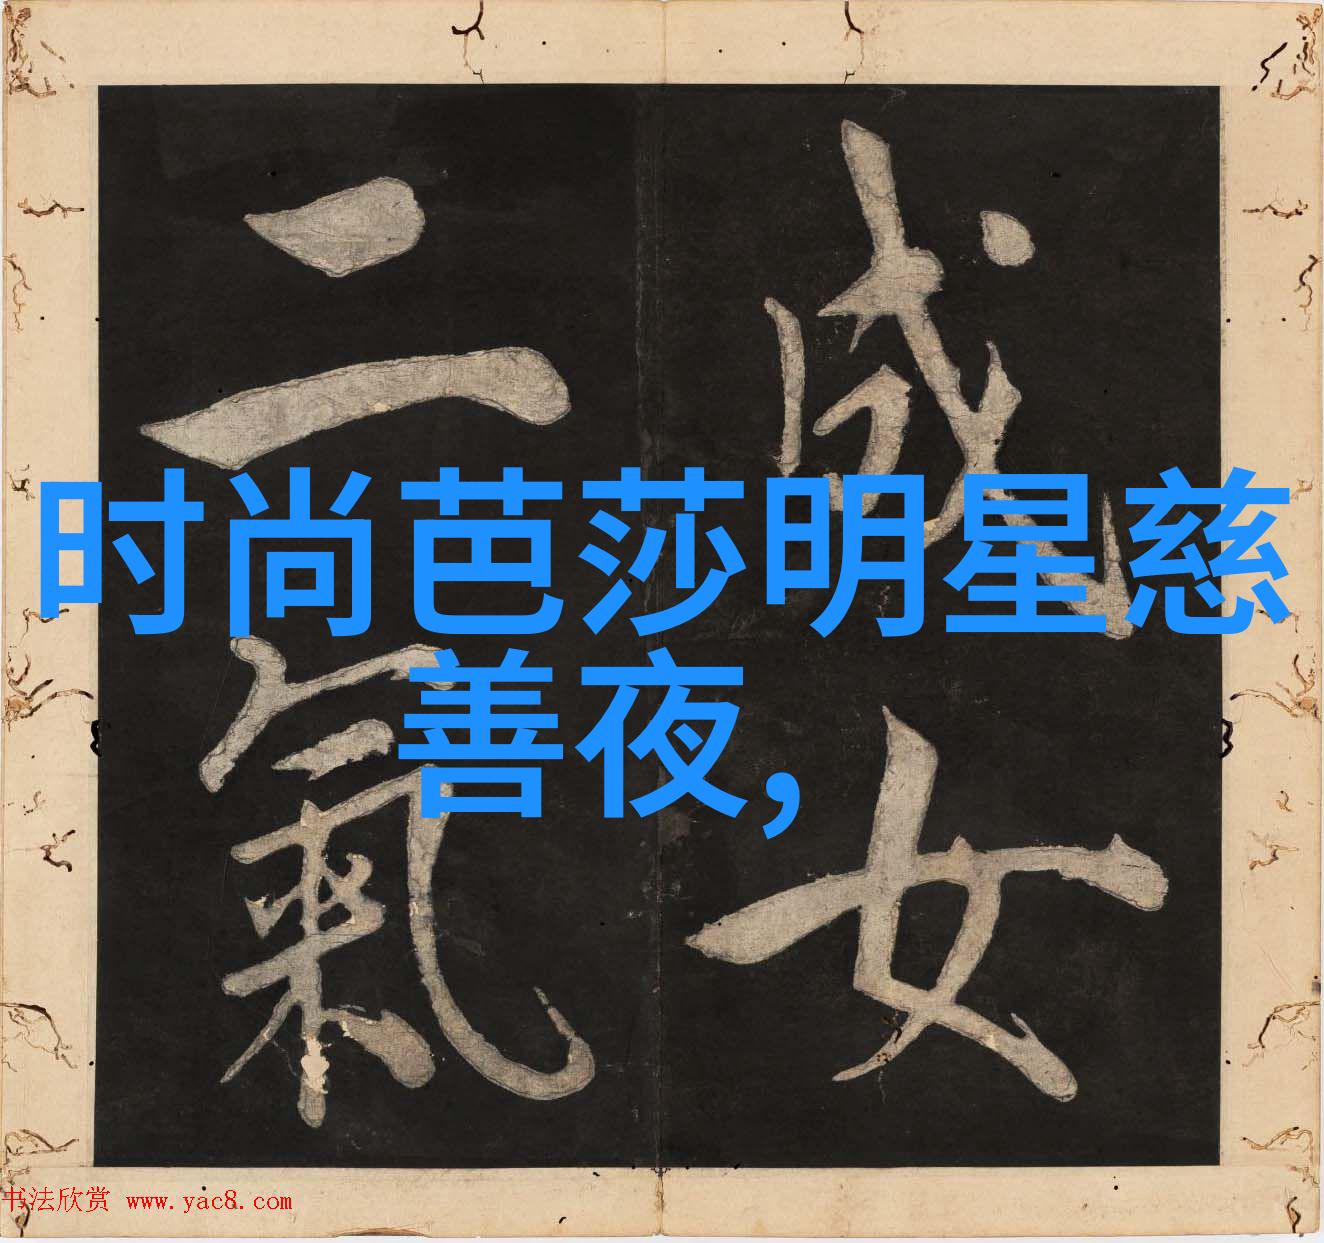 成女
二氣
时尚芭莎明星慈
善夜,
书法欣赏 www.yac8.com